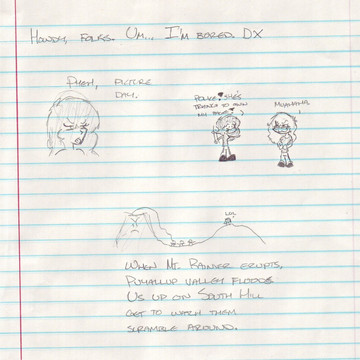 Howdy, folks. Um... I'm bored DX
picture
day.
Police! She's
trying to own
my face!
Muahaha
lol
When Mt. Rainier erupts,
Puyallup Valley floods
Us up on South Hill
get to watch them
scramble around.